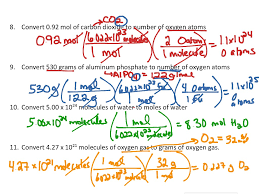 CO₂
8. Convert 0.92 mol of carbon dioxide to number of oxygen atoms
0.92 mol (6.022x10²³ molecules / 1 mol) (2 O atoms / 1 molecule) = 11x10²⁴ O atoms
9. Convert 530 grams of aluminum phosphate to number of oxygen atoms
AlPO₄ = 122 g/mol
530g (1 mol / 122g) (6.022x10²³ molecules / 1 mol) (4 O atoms / ) = 1 x10²⁵
10. Convert 5.00 x 10²⁴ molecules of water to moles of water
5.00x10²⁴ molecules (1 mol / 6.022x10²³ molecules) = 8.30 mol H₂O
O₂ = 32
11. Convert 4.27 x 10²¹ molecules of oxygen gas to grams of oxygen gas.
4.27x10²¹ molecules (1 mol / 6.022x10²³ molecules) (32 g / 1 mol) = 0.227 g O₂